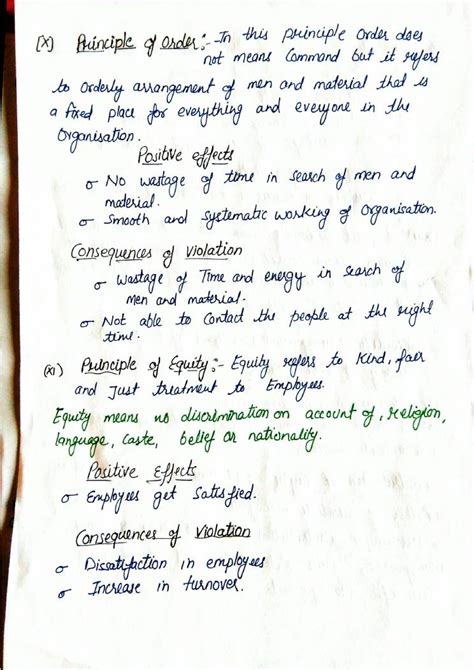 [X] Principle of Order:- In this principle Order does
not means Command but it refers
to Orderly arrangement of men and material that is
a fixed place for everything and everyone in the
Organisation.
Positive effects
σ No wastage of time in search of men and
material.
σ Smooth and systematic working of Organisation.
Consequences of Violation
σ Wastage of Time and energy in search of
men and material.
σ Not able to Contact the people at the right
time.
(XI) Principle of Equity:- Equity refers to Kind, fair
and Just treatment to Employees.
Equity means no discrimination on account of, religion,
language, Caste, belief or nationality.
Positive Effects
σ Employees get Satisfied.
Consequences of Violation
σ Dissatisfaction in employees
σ Increase in turnover.